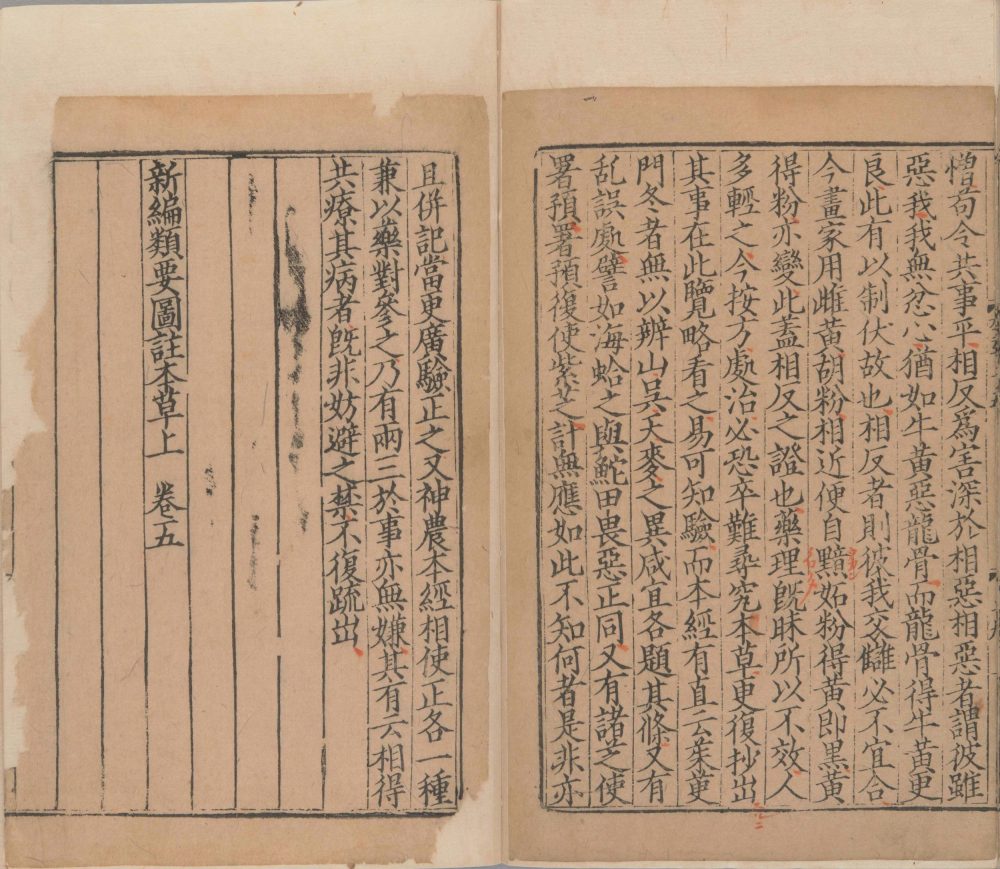 憎苟令共事乎相反爲害深於相惡相惡者謂彼雖
惡我我無忿心猶如牛黃惡龍骨而龍骨得牛黃更
良此有以制伏故也相反者則彼我交讎必不宜合
今畫家用雌黃胡粉相近便自黯妬粉得黃即黑黃
得粉亦變此蓋相反之證也藥理旣昧所以不效人
多輕之今按方處治必恐卒難尋究本草更復抄出
其事在此覽略看之易可知驗而本經有直云茱萸
門冬者無以辨山吳天麥之異咸宜各題其條又有
乱誤處譬如海蛤之與鮀田畏惡正同又有諸芝使
署預署預復使紫芝計無應如此不知何者是非亦
且併記當更廣驗正之又神農本經相使正各一種
兼以藥對參之乃有兩三於事亦無嫌其有云相得
共療其病者旣非妨避之禁不復疏出
新編類要圖註本草上 卷五